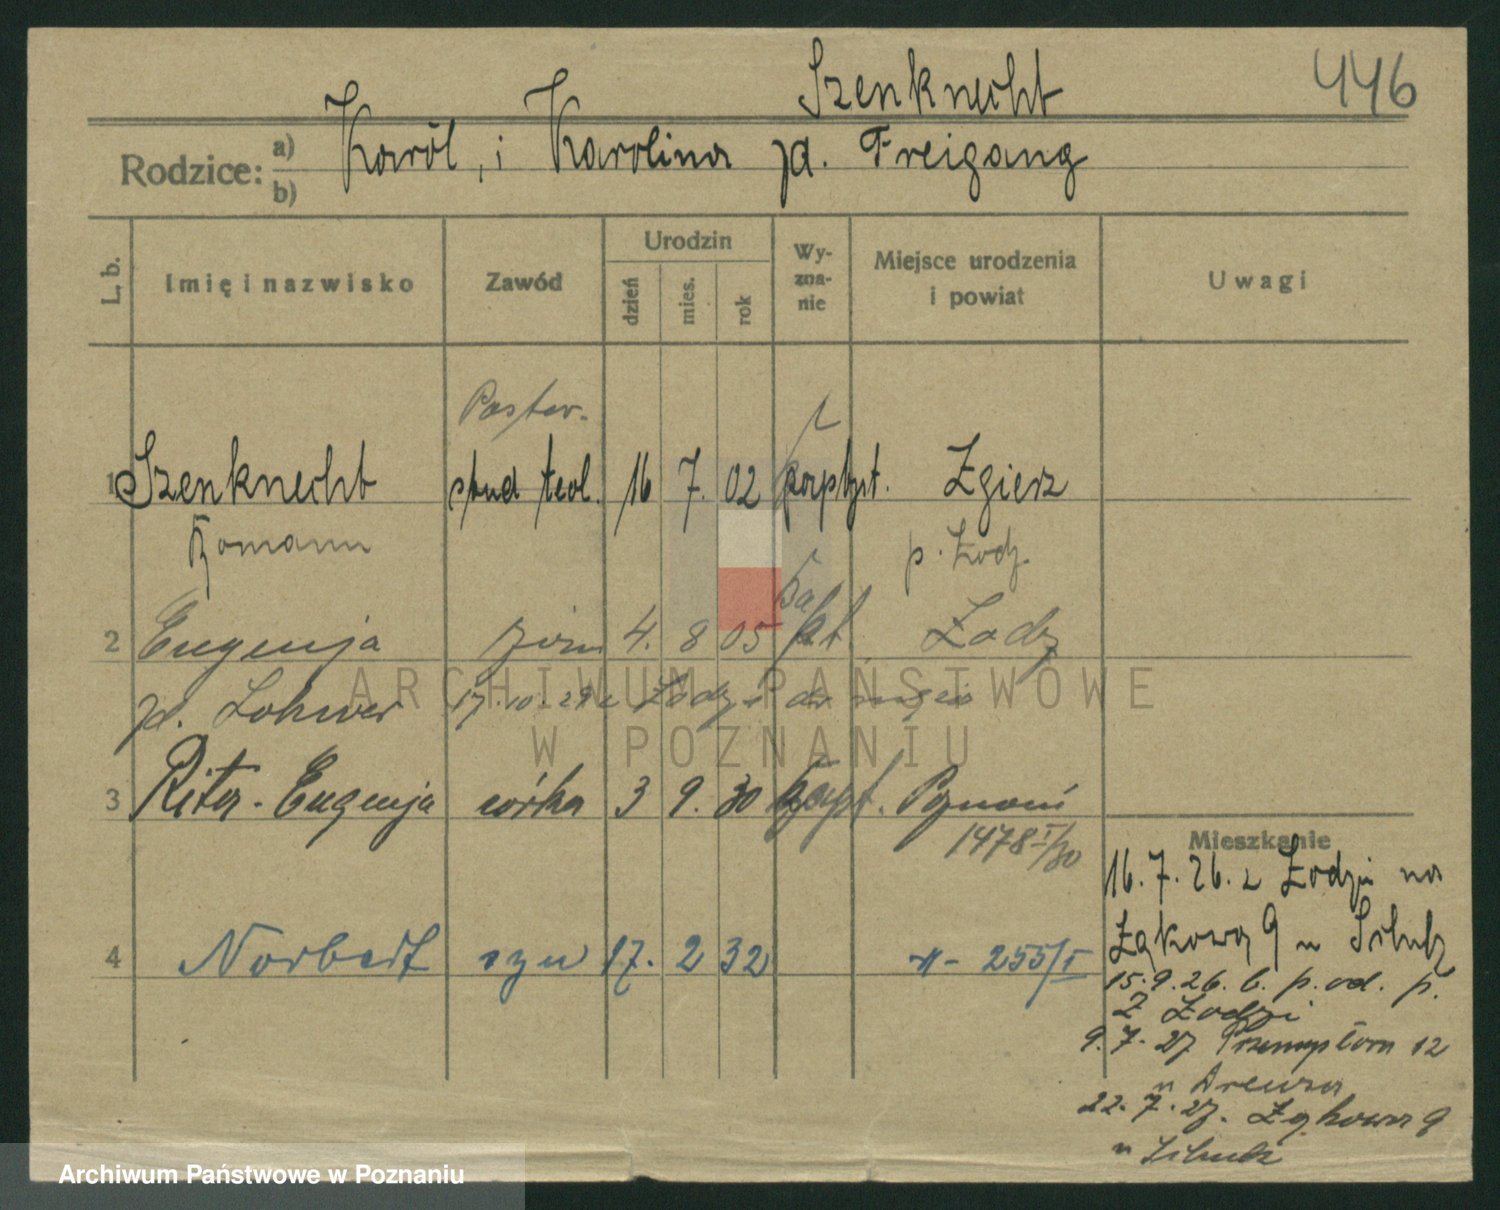 Szenknecht
446
Rodzice: a) b)
Karól, i Karolina zd. Freigang
L. b.
Imię i nazwisko
Zawód
Urodzin
dzień
mies.
rok
Wy-
zna-
nie
Miejsce urodzenia
i powiat
Uwagi
Pastor.
1 Szenknecht stud teol. 16 7. 02 Zgierz
Romann p. Łodz.
Ba
2 Eugenja żona 4. 8 05 pt. Łodz
zd. Lohrer 17.10.29 Łodzi
3 Rita-Eugenja córka 3 9. 30 Poznań
1478 I/30
4 Norbert syn 17. 2 32 255/I
Mieszkanie
16.7.26. z Łodzi na
Łąkowa 9 u
15.9.26. b. p. od. p.
z Łodzi
9.7.27 Przemysłowa 12
u
22.7.27. Łąkowa 9
u
ARCHIWUM PAŃSTWOWE
W POZNANIU
Archiwum Państwowe w Poznaniu